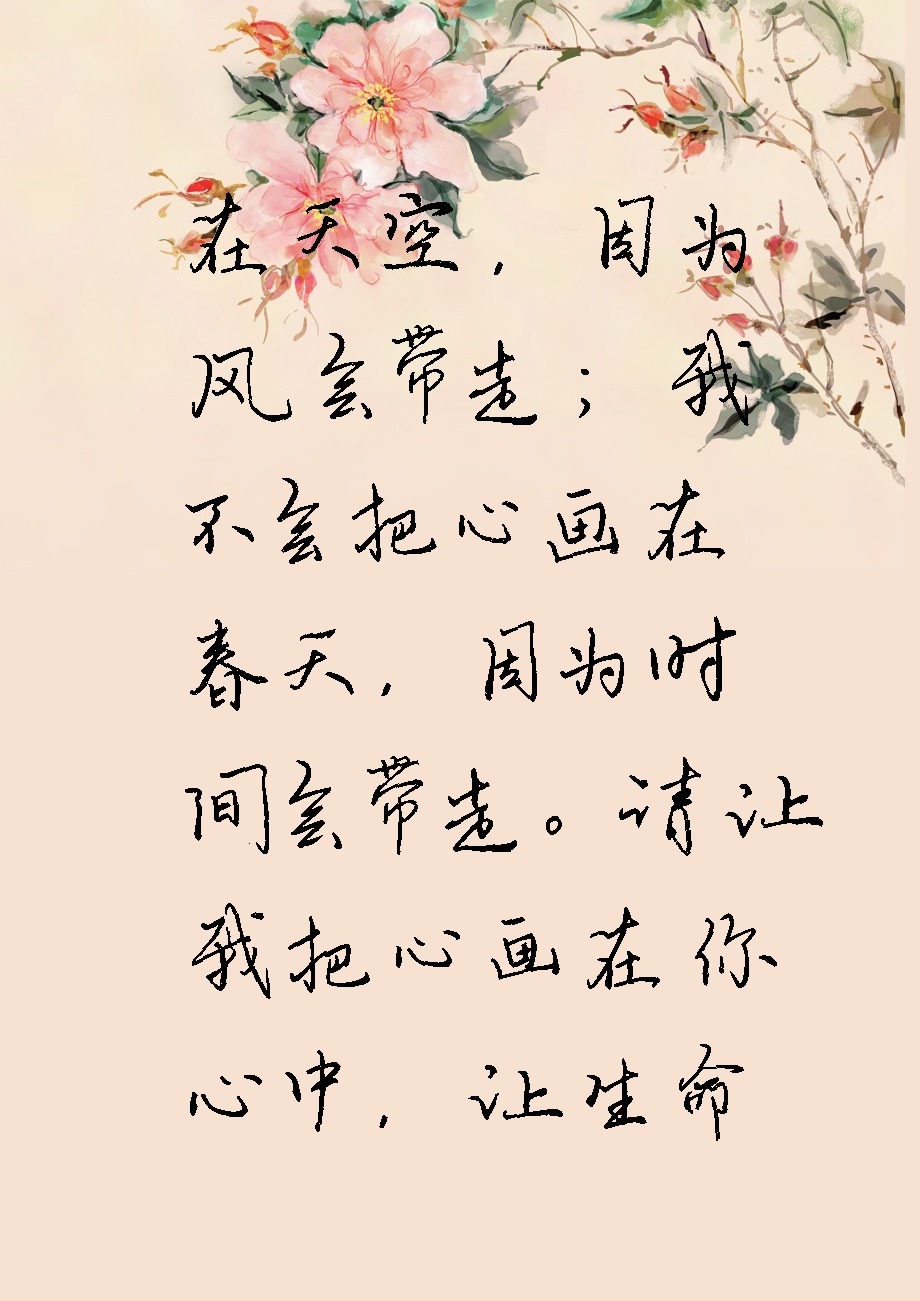 在天空，因为
风会带走；我
不会把心画在
春天，因为时
间会带走。请让
我把心画在你
心中，让生命